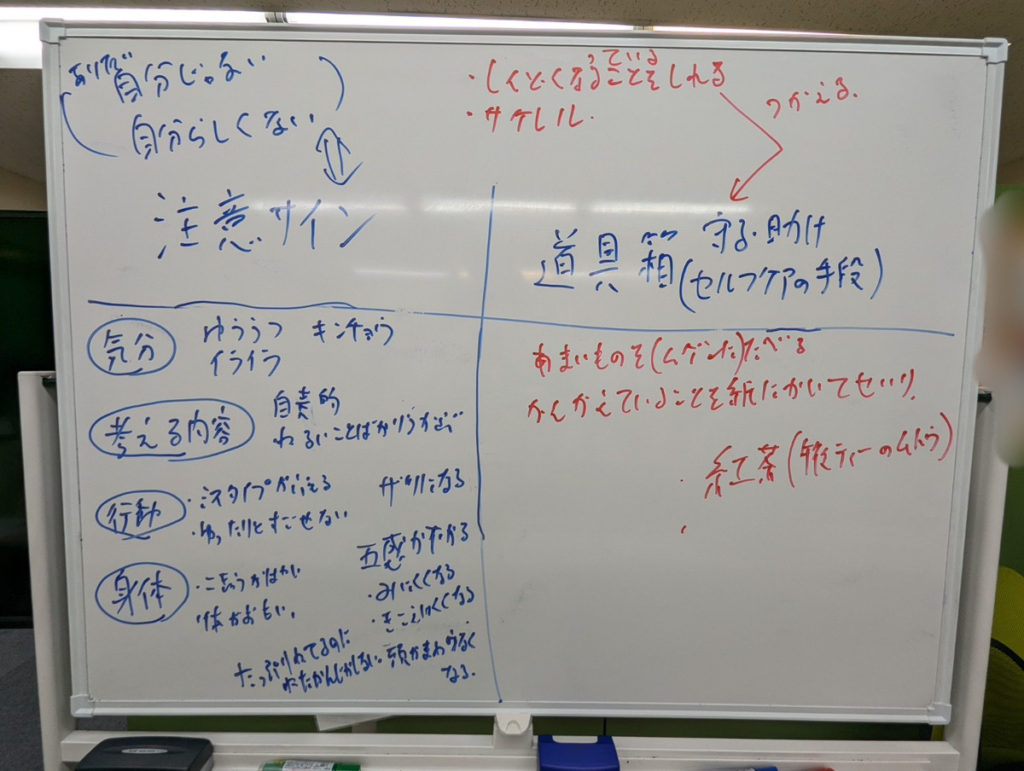 自分じゃない
自分らしくない
注意サイン
・しんどくなることをしれる
ている
・サケレル.
つかえる.
道具箱
守る・助け
(セルフケアの手段)
気分
ゆううつ キンチョウ
イライラ
考える内容
自責的
わるいことばかりうかぶ
行動
・ミスタイプがふえる
ザツになる
・ゆったりとすごせない
身体
体がおもい。
五感がにぶる
・みにくくなる
・きこえにくくなる
たっぷりねてるのに
ねたかんじがしない
頭がまわらなく
なる.
あまいものを(ムゲンに)たべる
かんがえていることを紙にかいてせいり
・紅茶